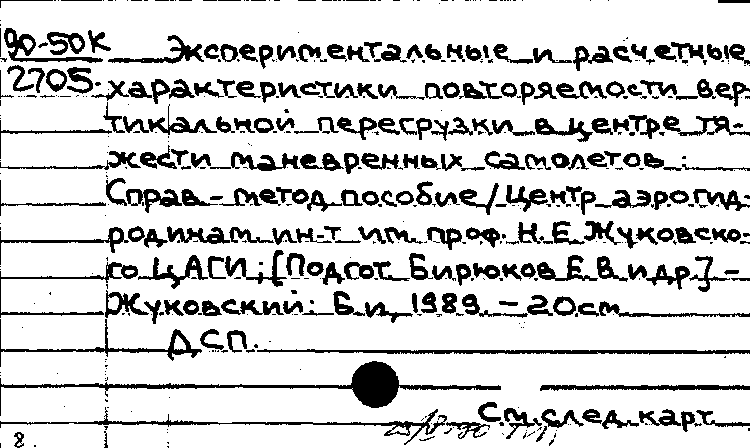 90-50К
2705.
Экспериментальные и расчетные
характеристики повторяемости вер
тикальной перегрузки в центре тя-
жести маневренных самолетов :
Справ-метод пособие/Центр аэрогид-
родинам ин-т им проф. Н. Е. Жуковско-
го ЦАГИ; [Подгот Бирюков Е. В и др.] -
Жуковский: Б. и, 1989. - 20см
ДСП.
См. след. карт.
8